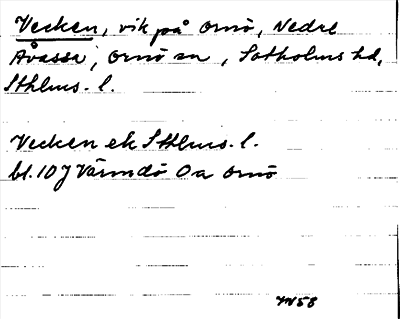 Vecken, vik på Ornö, Nedre
Åvassa, Ornö sn, Sotholms hd,
Sthlms. l.
Vecken ek Sthlms. l.
bl. 10J Värmdö Oa Ornö